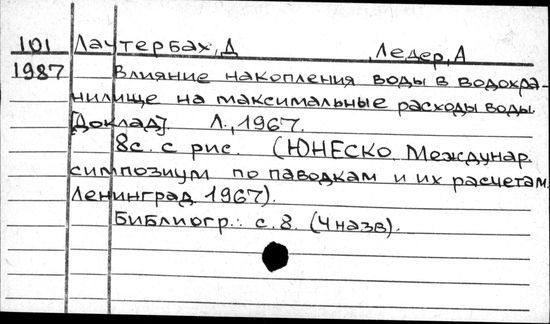 101 Лаутербах, Д ,Ледер, А
1987 Влияние накопления воды в водохра-
нилище на максимальные расходы воды
[Доклад]. Л., 1967.
8с. с рис. (ЮНЕСКО. Междунар
симпозиум по паводкам и их расчетам.
Ленинград 1967).
Библиогр.: с.8. (4 назв).